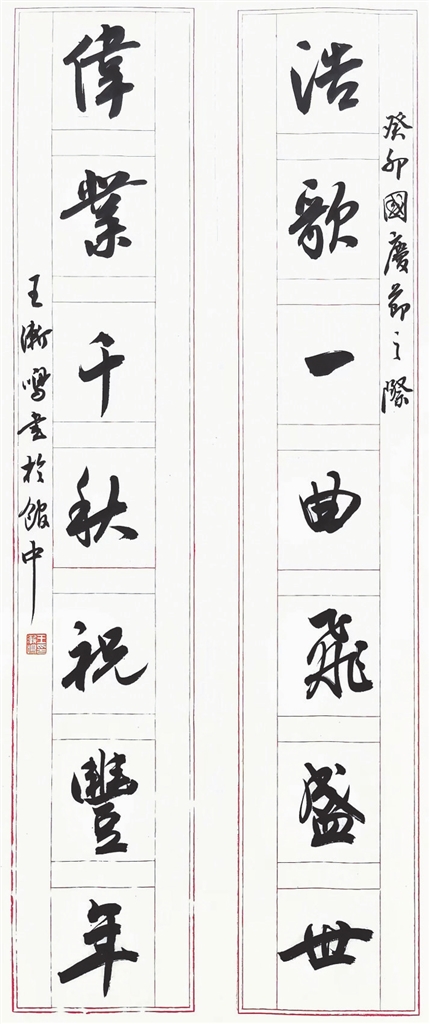 癸卯國慶節之際
浩歌一曲飛盛世
偉業千秋祝豐年
王漸鳴書於館中